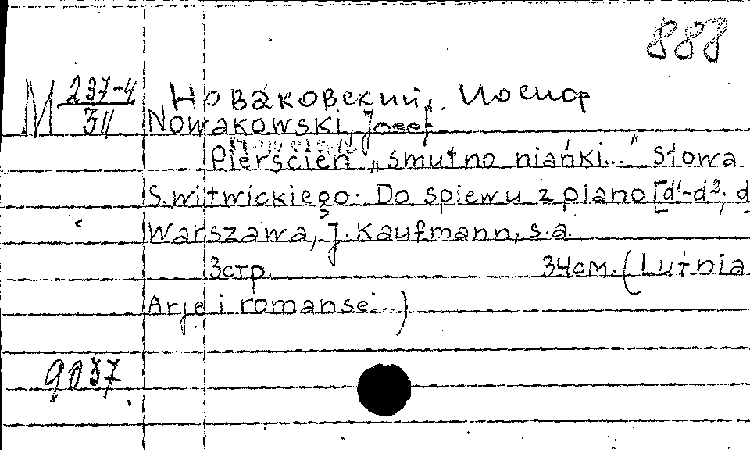 888
М 237-4/311 Новаковский, Иосиф
Nowakowski, Josef
Pierścień „smutno niańki..." Słowa
S. Witwickiego. Do spiewu z piano [d¹-d²; d
Warszawa, J. Kaufmann, s.a.
3стр. 34см. (Lutnia
Arje i romanse...)
9037.